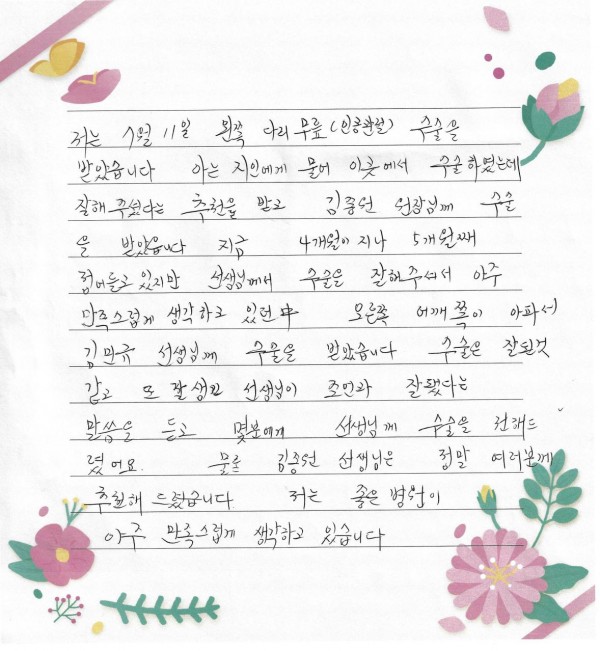 저는 7월 11일 왼쪽 다리 무릎(인공관절) 수술을
받았습니다 아는 지인에게 물어 이곳에서 수술하였는데
잘해주셨다는 추천을 받고 김종원 원장님께 수술
을 받았습니다 지금 4개월이 지나 5개월째
접어들고 있지만 선생님께서 수술을 잘해주셔서 아주
만족스럽게 생각하고 있던中 오른쪽 어깨쪽이 아파서
김민규 선생님께 수술을 받았습니다 수술은 잘된것
같고 또 잘생긴 선생님이 조언과 잘됐다는
말씀을 듣고 몇분에게 선생님께 수술을 권해드
렸어요. 물론 김종원 선생님은 정말 여러분께
추천해 드렸습니다 저는 좋은 병원이
아주 만족스럽게 생각하고 있습니다